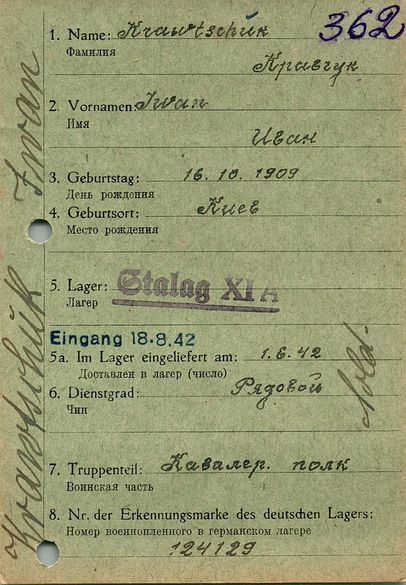 362
1. Name: Krawtschuk
Фамилия
Кравчук
2. Vornamen: Iwan
Имя
Иван
3. Geburtstag: 16. 10. 1909
День рождения
4. Geburtsort: Киев
Место рождения
5. Lager: Stalag XI A
Лагер
Eingang 18.8.42
5a. Im Lager eingeliefert am: 1.6.42
Доставлен в лагер (число)
6. Dienstgrad: Рядовой
Чин
Sold.
7. Truppenteil: Кавалер. полк
Воинская часть
8. Nr. der Erkennungsmarke des deutschen Lagers:
Номер военнопленного в германском лагере
124129
Krawtschuk Iwan